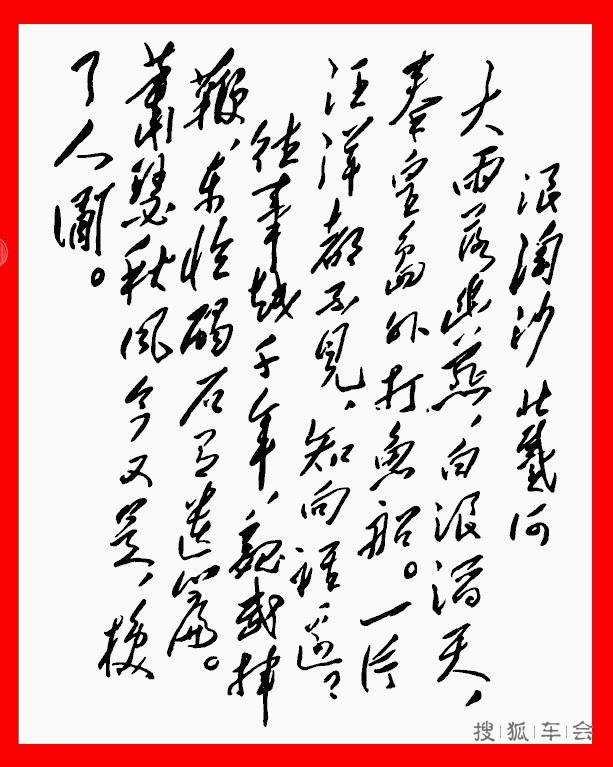 浪淘沙 北戴河
大雨落幽燕,白浪滔天,
秦皇岛外打鱼船。一片
汪洋都不见,知向谁边?
往事越千年,魏武挥
鞭,东临碣石有遗篇。
萧瑟秋风今又是,换
了人间。
搜狐车会